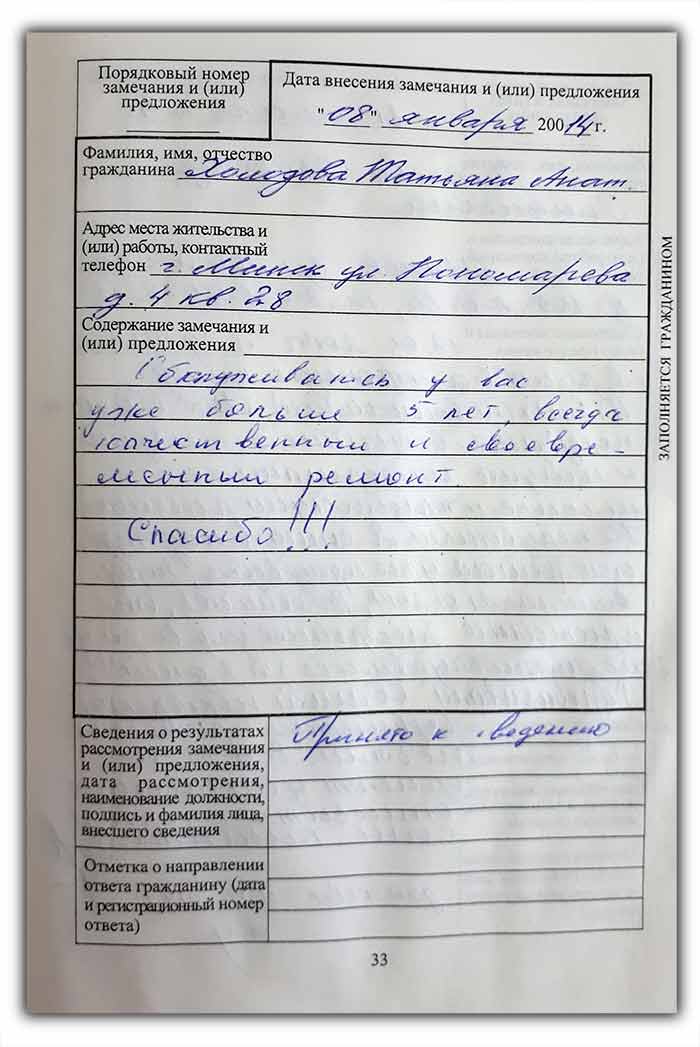 Порядковый номер
замечания и (или)
предложения
Дата внесения замечания и (или) предложения
"08" января 20014 г.
Фамилия, имя, отчество
гражданина Холодова Татьяна Анат.
Адрес места жительства и
(или) работы, контактный
телефон г. Минск ул. Пономарева
д. 4 кв. 28
Содержание замечания и
(или) предложения
Обслуживаюсь у вас
уже больше 5 лет, всегда
качественный и своевре-
менный ремонт
Спасибо!!!
ЗАПОЛНЯЕТСЯ ГРАЖДАНИНОМ
Сведения о результатах
рассмотрения замечания
и (или) предложения,
дата рассмотрения,
наименование должности,
подпись и фамилия лица,
внесшего сведения
Принято к сведению
Отметка о направлении
ответа гражданину (дата
и регистрационный номер
ответа)
33